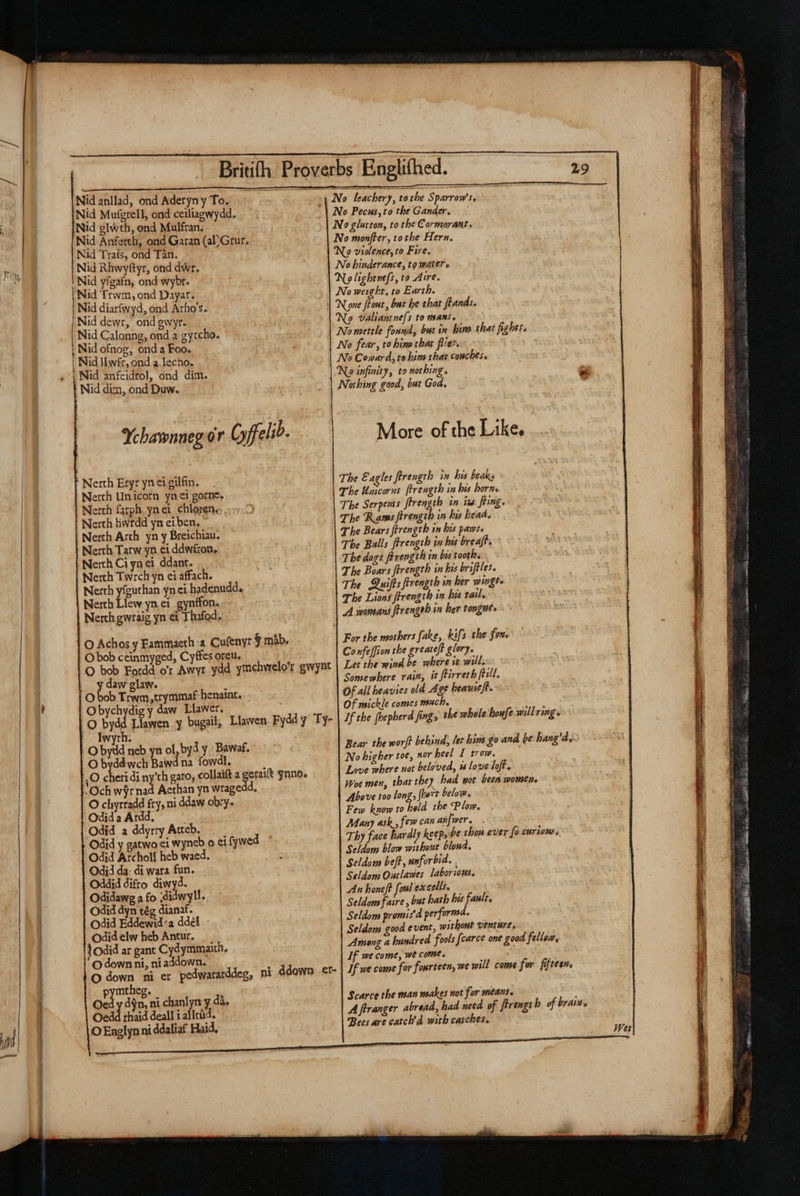 Britiſh Proverbs Engliſhed. 29
Nid anllad, ond Aderyn y To.
Nid Muſgrell, ond ceiliagwydd.
Nid glwth, ond Mulfran.
Nid Anferth, ond Garan (al)Grur.
Nid Trais, ond Tân.
Nid Rhwyſtyr, ond dŵr.
Nid yſgafn, ond wybr.
Nid Trwm, ond Dayar.
Nid diarſwyd, ond Arho's.
Nid dewr, ond gwyr.
Nid Calonng, ond a gyrcho.
Nid ofnog, ond a Foo.
Nid llwfr, ond a lecho.
Nid anfeidrol, ond dim.
Nid dim, ond Duw.
No leachery, to the Sparrow's.
No Pecus, to the Gander.
No glutton, to the Cormorant.
No monſter, to the Hern.
No violence, to Fire.
No hinderance, to water.
No lightneſs, to Aire.
No weight, to Earth.
None ſtout, but he that ſtands.
No valiantneſs to mans.
No mettle found, but in him that fights.
No fear, to him that flies.
No Coward, to him that couches.
No infinity, to nothing.
Nothing good, but God.
Ychawnneg o'r Cyffelib.
More of the Like.
Nerth Eryr yn ei gilfin.
Nerth Unicorn yn ei gorne.
Nerth ſarph yn ei chloren.
Nerth hwrdd yn ei ben.
Nerth Arth yn y Breichiau.
Nerth Tarw yn ei ddwfron.
Nerth Ci yn ei ddant.
Nerth Twrch yn ei affach.
Nerth yſguthan yn ei hadenudd.
Nerth Llew yn ei gynffon.
Nerth gwraig yn ei Thafod.
The Eagles ſtrength in his beak,
The Unicorns ſtrength in his horn.
The Serpents ſtrength in its ſting.
The Rams ſtrength in his head.
The Bears ſtrength in his paws.
The Bulls ſtrength in his breaſt.
The dogs ſtrength in his tooth.
The Boars ſtrength in his briſtles.
The Quiſts ſtrength in her wings.
The Lions ſtrength in his tail.
A womans ſtrength in her tongue.
O Achos y Fammaeth a Cuſenyr y mâb.
O bob ceinmyged, Cyffes oreu.
O bob Fordd o'r Awyr ydd ymchwelo'r gwynt
y daw glaw.
O bob Trwm, trymmaf henaint.
O bychydig y daw Llawer.
O bydd Llawen y bugail, Llawen Fydd y Ty-
lwyth.
O bydd neb yn ol, byd y Bawaf.
O bydd wch Bawd na ſowdl.
O cheri di ny'th garo, collaiſt a geraiſt ynno.
Och wŷr nad Aethan yn wragedd.
O chyrradd fry, ni ddaw obry.
Odid a Ardd.
Odid a ddyrry Atteb.
Odid y gatwo ei wyneb o ei ſywed
Odid Archoll heb waed.
Odid da: di wara fun.
Oddid difro diwyd.
Odidawg a fo didwyll.
Odid dyn tég dianaf.
Odid Eddewid a ddél
Odid elw heb Antur.
Odid ar gant Cydymmaith.
O down ni, ni addown.
O down ni er pedwararddeg, ni ddown er-
pymtheg.
Oed y dŷn, ni chanlyn y dâ.
Oedd rhaid deall i alltúd.
O Englyn ni ddaliaf Haid.
For the mothers ſake, kiſs the ſon.
Confeſſion the greateſt glory.
Let the wind be where it will,
Somewhere rain, it ſtirreth ſtill.
Of all heavies old Age heavieſt.
Of mickle comes much.
If the ſhepherd ſing, the whole houſe will ring.
Bear the worſt behind, let him go and be hang'd.
No higher toe, nor heel I trow.
Love where not beloved, is love loſt.
Woe men, that they had not been women.
Above too long, ſhort below.
Few know to hold the Plow.
Many ask, few can anſwer.
Thy face hardly keep, be thou ever ſo curious,
Seldom blow without bloud.
Seldom beſt, unforbid.
Seldom Outlawes laborious.
An honeſt ſoul excells.
Seldom faire, but hath his fault.
Seldom promis'd performd.
Seldom good event, without venture.
Among a hundred fools ſcarce one good fellow.
If we come, we come.
If we come for fourteen, we will come for fifteen.
Scarce the man makes not for means.
A ſtranger abroad, had need of ſtrength of brain.
Bees are catch'd with catches.
Wes